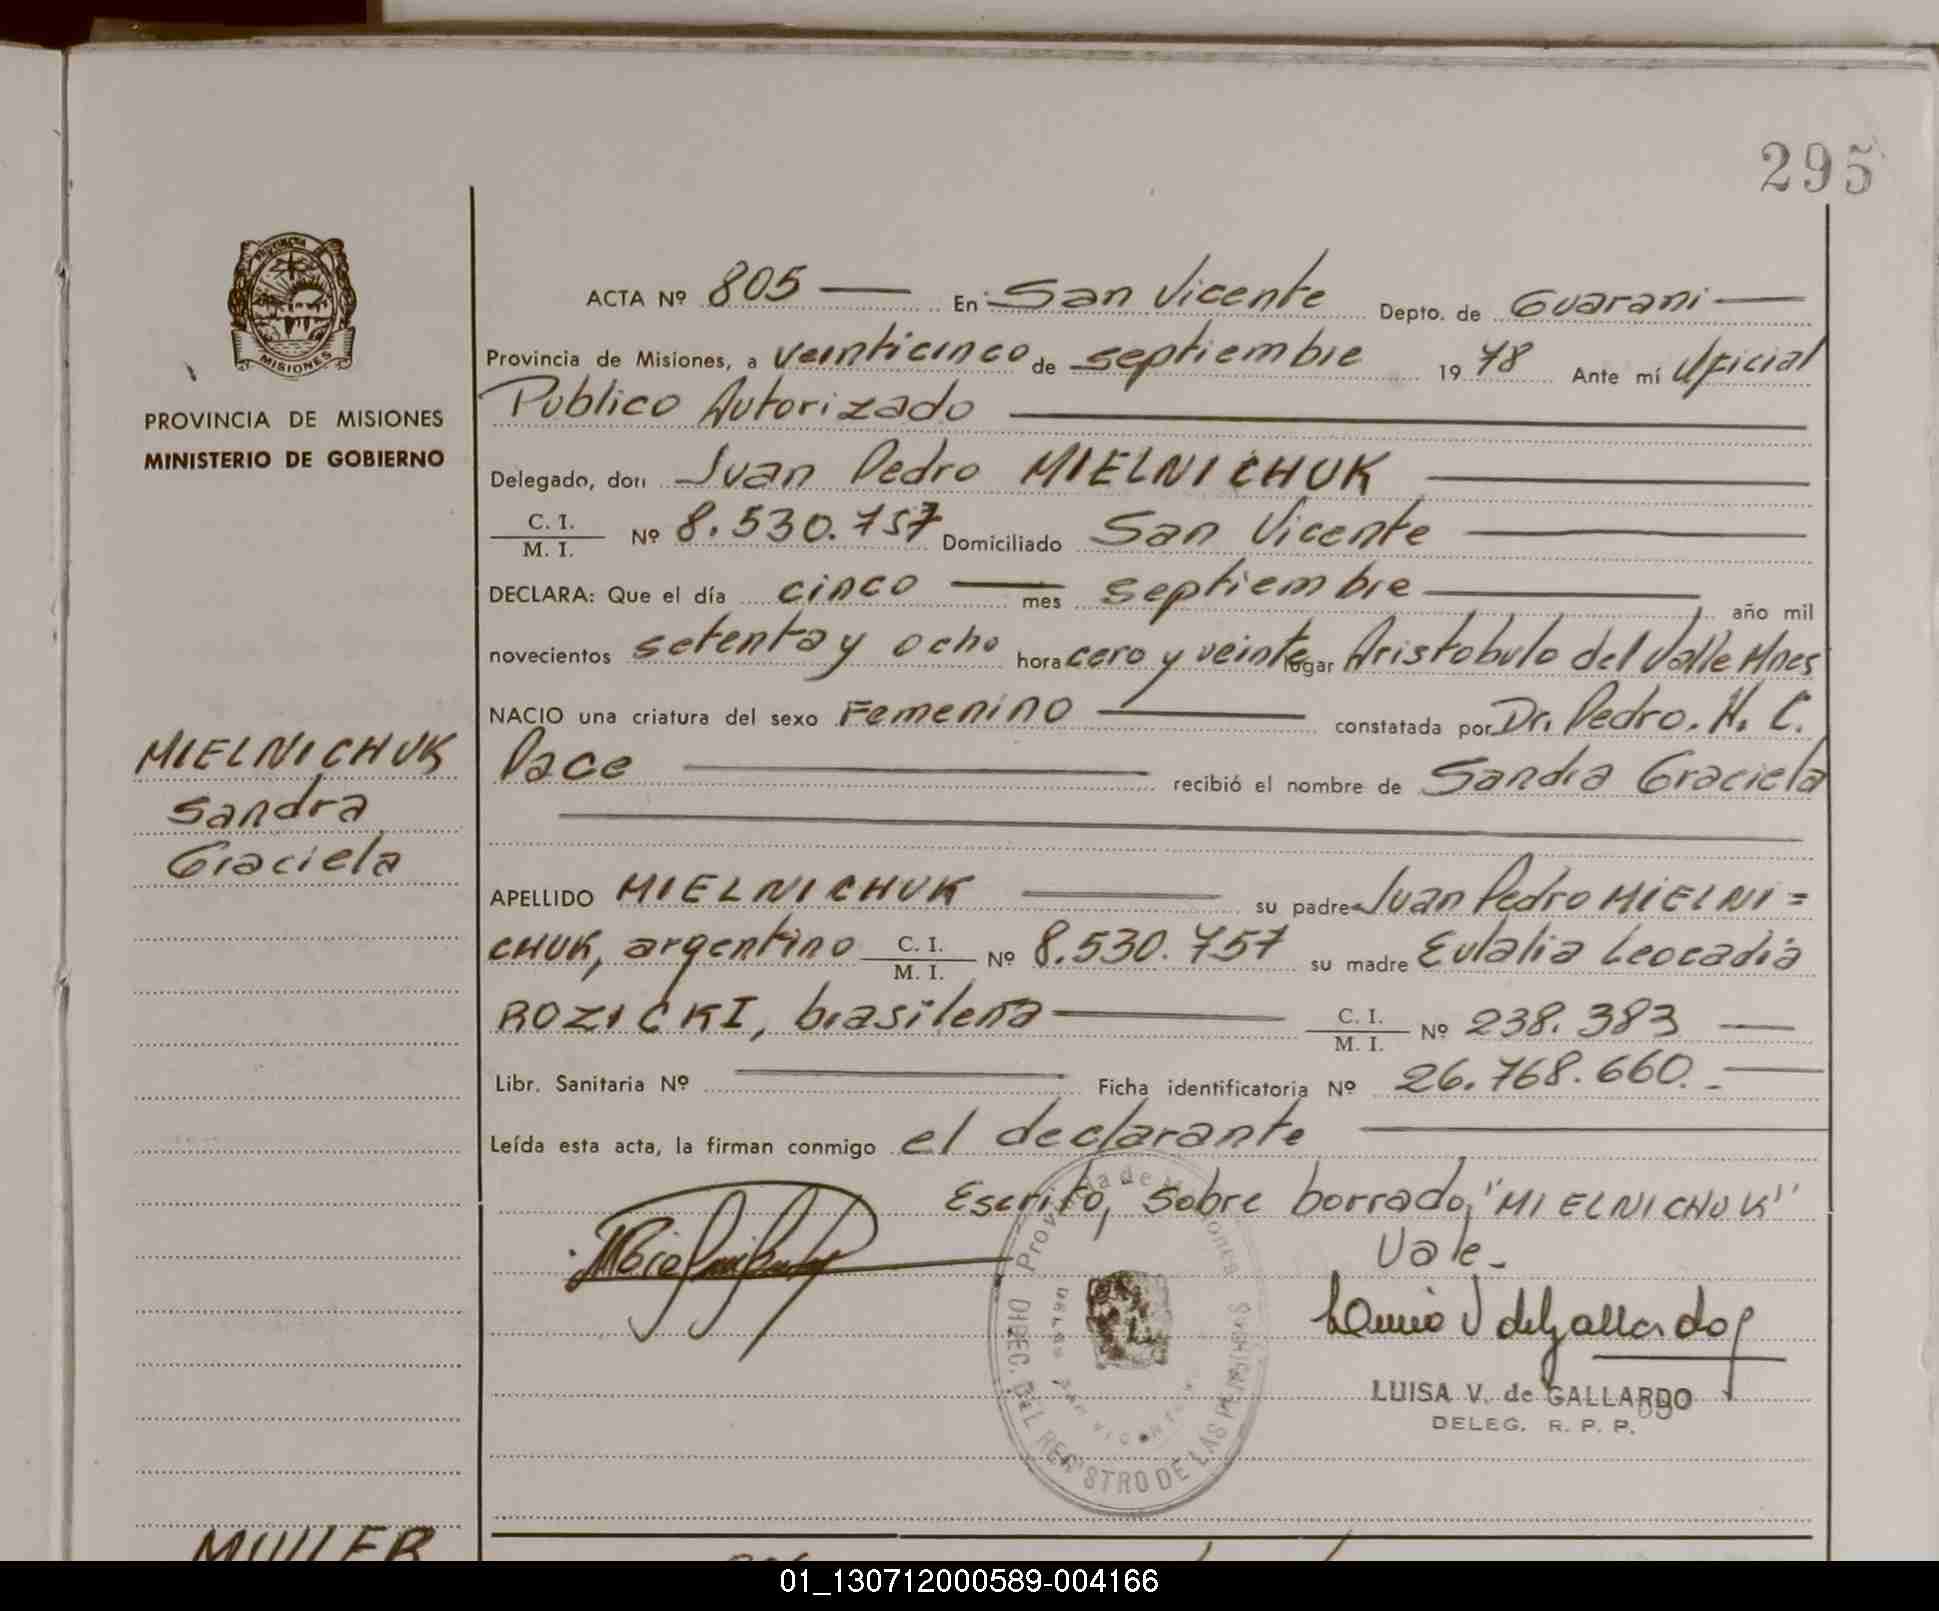 295
ACTA Nº 805 En San Vicente Depto. de Guarani
Provincia de Misiones, a veinticinco de septiembre 1978 Ante mí Oficial
Publico Autorizado
Delegado, don Juan Pedro MIELNICHUK
C. I. / M. I. Nº 8.530.757 Domiciliado San Vicente
DECLARA: Que el día cinco mes septiembre año mil
novecientos setenta y ocho hora cero y veinte lugar Aristobulo del Valle Mnes
NACIO una criatura del sexo Femenino constatada por Dr. Pedro. H. C.
Pace recibió el nombre de Sandra Graciela
APELLIDO MIELNICHUK su padre Juan Pedro MIELNI=
CHUK, argentino C. I. / M. I. Nº 8.530.757 su madre Eulalia Leocadia
ROZICKI, brasileña C. I. / M. I. Nº 238.383
Libr. Sanitaria Nº Ficha identificatoria Nº 26.768.660.-
Leída esta acta, la firman conmigo el declarante
Escrito, sobre borrado, "MIELNICHUK"
Vale.-
LUISA V. de GALLARDO
DELEG. R. P. P.
Provincia de Misiones
DIREC. DEL REGISTRO DE LAS PERSONAS
MISIONES
PROVINCIA DE MISIONES
MINISTERIO DE GOBIERNO
MIELNICHUK
Sandra
Graciela
MULLER
01_130712000589-004166